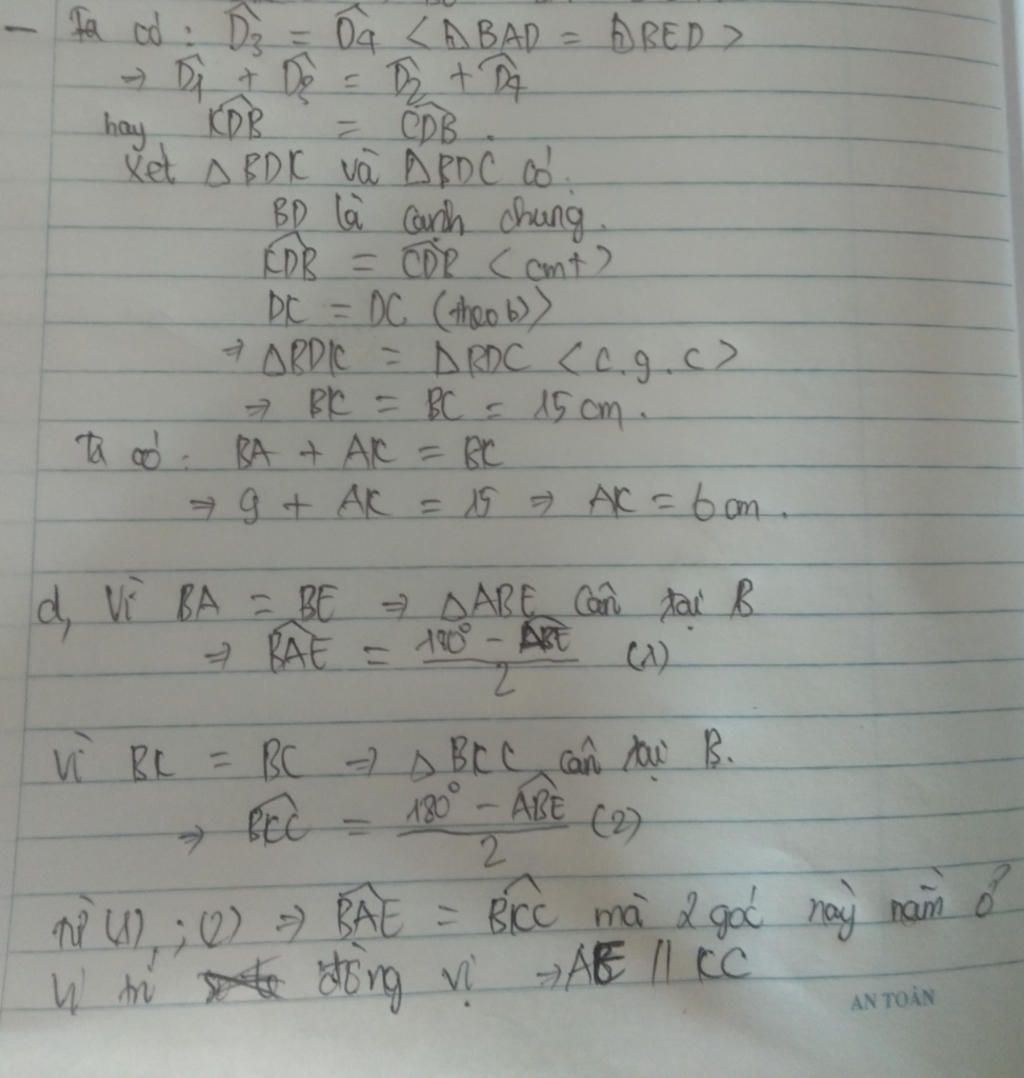 - Ta có : D̂3 = D̂4 < ΔBAD = ΔBED >
⇒ D̂1 + D̂3 = D̂2 + D̂4
hay KDB̂ = CDB̂.
Xét ΔBDK và ΔBDC có:
BD là cạnh chung.
KDB̂ = CDB̂ < cmt >
DK = DC (theo b)>
⇒ ΔBDK = ΔBDC < c.g.c >
⇒ BK = BC = 15 cm.
Ta có: BA + AK = BK
⇒ 9 + AK = 15 ⇒ AK = 6 cm.
d, Vì BA = BE ⇒ ΔABE cân tại B
⇒ BAÊ = (180° - ABÊ)/2 (1)
Vì BK = BC ⇒ ΔBKC cân tại B.
⇒ BKĈ = (180° - ABÊ)/2 (2)
Từ (1), ; (2) ⇒ BAÊ = BKĈ mà 2 góc này nằm ở
vị trí đồng vị ⇒ AE // KC
AN TOÀN